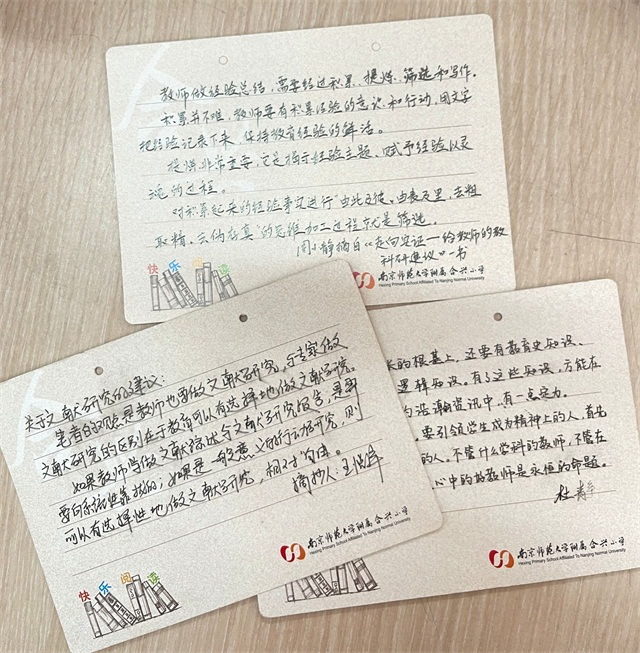 教师做经验总结,需要经过积累、提炼、筛选和写作。
积累并不难,教师要有积累经验的意识和行动,用文字
把经验记录下来,保持教育经验的鲜活。
提炼非常重要,它是揭示经验主题,赋予经验以灵
魂的过程。
对积累起来的经验事实进行“由此及彼、由表及里、去粗
取精、去伪存真”的思维加工过程就是筛选。
周小静摘自《走向实证——给教师的教
科研建议》一书
快乐阅读
南京师范大学附属合兴小学
Hexing Primary School Affiliated To Nanjing Normal University
关于文献研究的建议:
笔者的观点是教师也要做文献研究,与专家做
文献研究的区别在于教育可以有选择地做文献研究。
如果教师学做文献综述与文献研究报告,是
要向系统性靠拢的,如果是一般意义的行动研究,则
可以有选择性地做文献研究,相对简单。
摘抄人:王
快乐阅读
南京师范大学附属合兴小学
Hexing Primary School Affiliated To Nanjing Normal University
的根基上,还要有教育史知识、
逻辑知识。有了这些知识,方能在
浩瀚资讯中,有一定定力。
要引领学生成为精神上的人,首先
的人。不管什么学科的教师,不管在
心中的好教师是永恒的命题。
杜
南京师范大学附属合兴小学
Hexing Primary School Affiliated To Nanjing Normal University